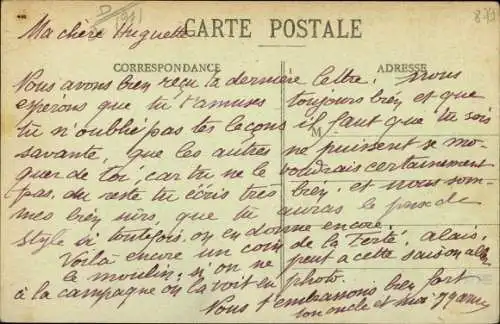 Ma chère Huguette
CARTE POSTALE
CORRESPONDANCE
ADRESSE
Nous avons bien reçu ta dernière lettre. Nous
espérons que tu t'amuses toujours bien et que
tu n'oublie pas tes leçons il faut que tu sois
M
savante, que les autres ne puissent se mo-
quer de toi, car tu ne le voudrais certainement
pas. du reste tu écris très bien. et nous som-
mes bien surs, que tu auras le prix de
style si toutefois, on en donne encore.
Voilà encore un coin de la Ferté. Alais.
le moulin; si on ne peut a cette saison aller
à la campagne on la voit en photo.
Nous t'embrassons bien fort
ton oncle et